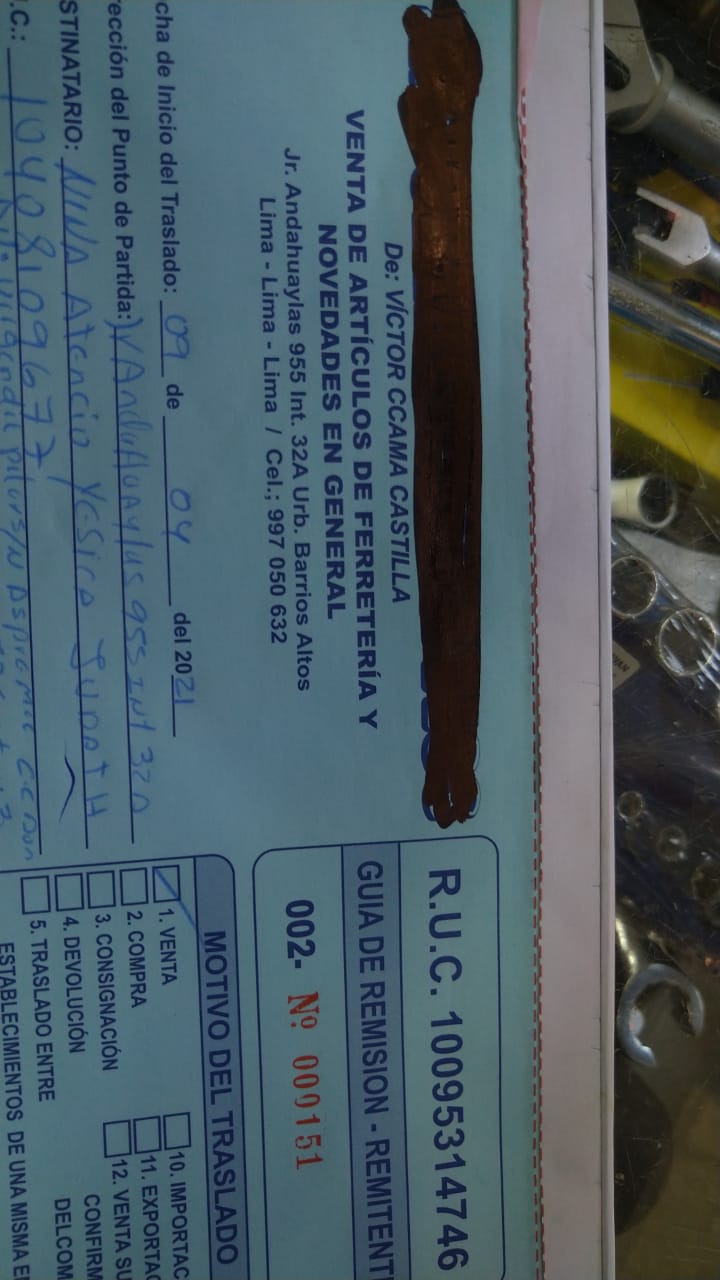 De: VÍCTOR CCAMA CASTILLA
VENTA DE ARTÍCULOS DE FERRETERÍA Y
NOVEDADES EN GENERAL
Jr. Andahuaylas 955 Int. 32A Urb. Barrios Altos
Lima - Lima - Lima / Cel.; 997 050 632
R.U.C. 10095314746
GUIA DE REMISION - REMITENT
002- Nº 000151
cha de Inicio del Traslado: 09 de 04 del 2021
rección del Punto de Partida: AnduHuaylus 955 INT 32A
STINATARIO: NINA Atencio YESICA JUDATH
.C.: 10408109677
MOTIVO DEL TRASLADO
1. VENTA
2. COMPRA
3. CONSIGNACIÓN
4. DEVOLUCIÓN
5. TRASLADO ENTRE
ESTABLECIMIENTOS DE UNA MISMA E
10. IMPORTAC
11. EXPORTAC
12. VENTA SU
CONFIRM
DELCOM